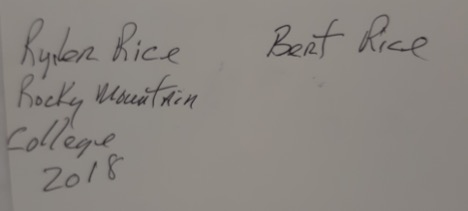 Ryder Rice
Bert Rice
Rocky Mountain
College
2018